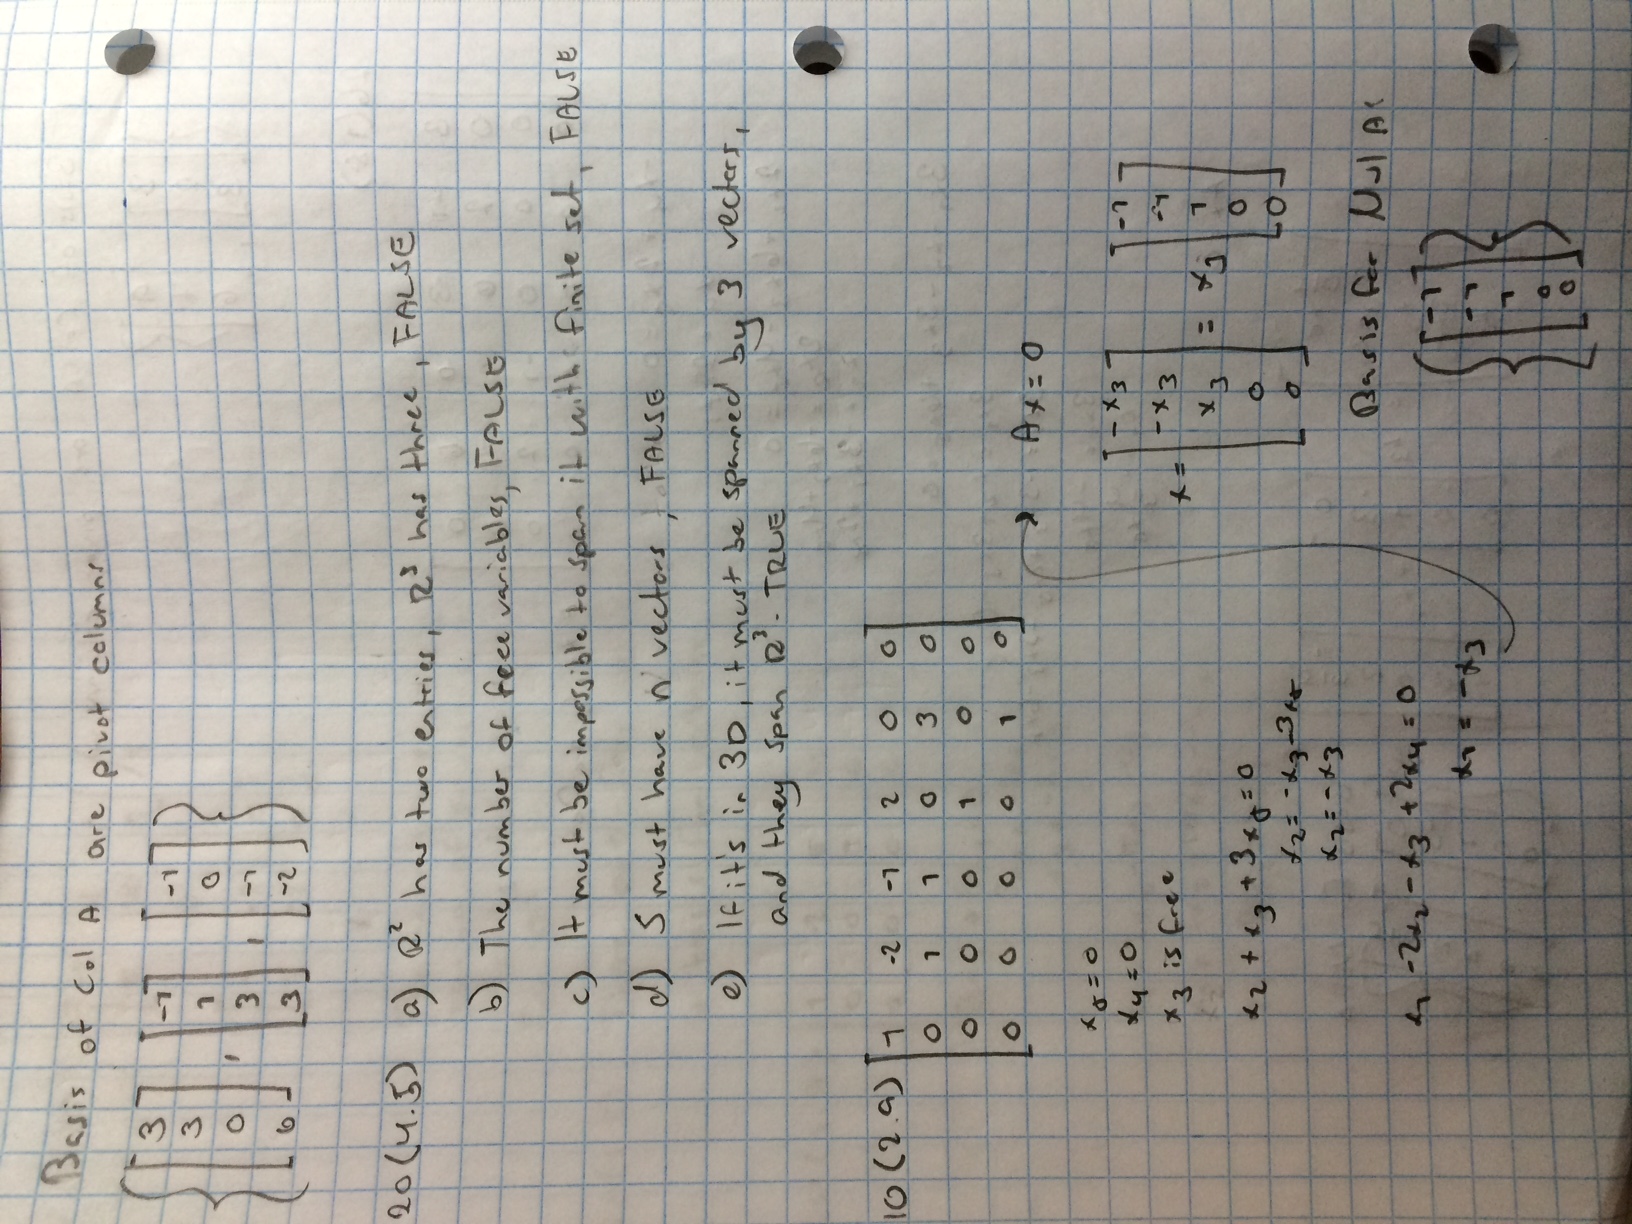 Basis of Col A are pivot columns
{ [3 3 0 6], [-1 1 3 3], [-1 0 -1 -2] }
20 (4.5) a) R² has two entries, R³ has three, FALSE
b) The number of free variables, FALSE
c) It must be impossible to span it with finite set, FALSE
d) S must have n vectors, FALSE
e) If it's in 3D, it must be spanned by 3 vectors,
and they span R³. TRUE
10 (2.9) [1 -2 -1 2 0 0
0 1 1 0 3 0
0 0 0 1 0 0
0 0 0 0 1 0]
x5 = 0
x4 = 0
x3 is free
x2 + x3 + 3x5 = 0
x2 = -x3 - 3x5
x2 = -x3
x1 - 2x2 - x3 + 2x4 = 0
x1 = -x3
Ax = 0
x = [-x3 -x3 x3 0 0] = x3 [-1 -1 1 0 0]
Basis for Nul A:
{ [-1 -1 1 0 0] }